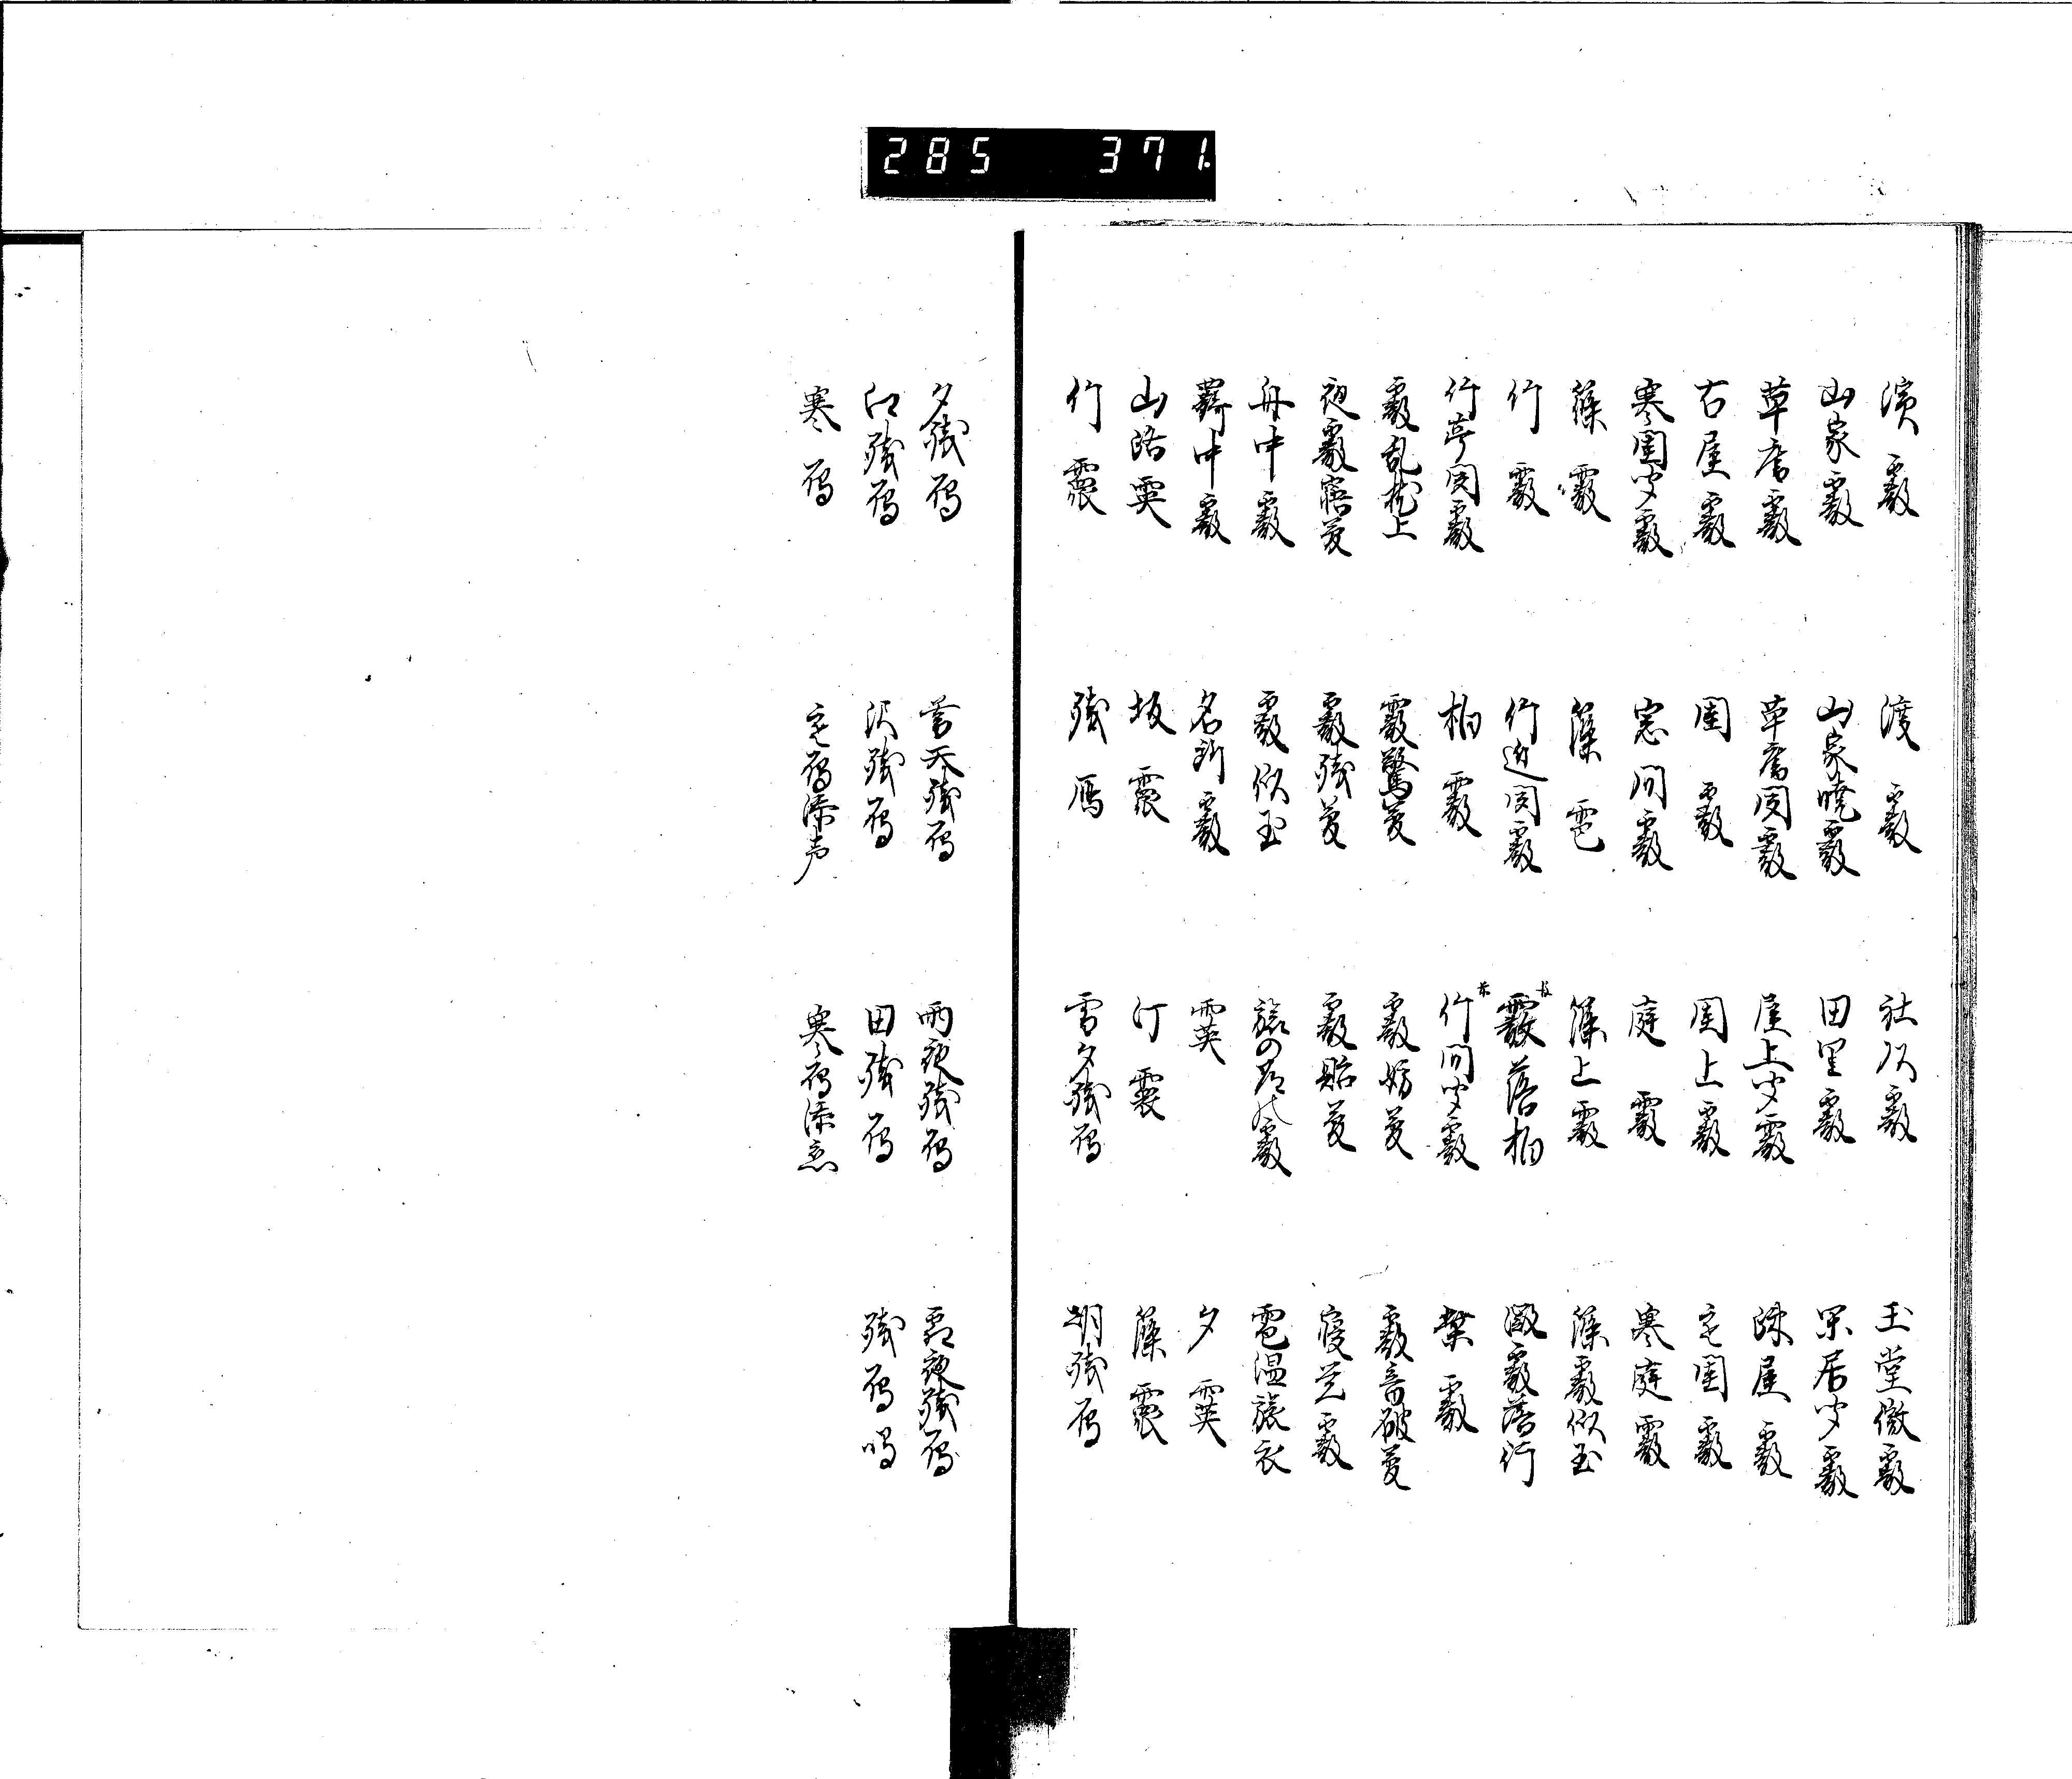 285 371
濱霰 渡霰 社頭霰 玉堂微霰
山家霰 山家暁霰 田里霰 閑居聞霰
草庵霰 草庵聞霰 屋上聞霰 疎屋霰
古屋霰 閨霰 閨上霰 空閨霰
寒閨聞霰 窓間霰 庭霰 寒庭霰
篠霰 篠雹 篠上霰 篠霰似玉
竹霰 竹辺聞霰 霰落柏 霰落竹
竹亭聞霰 柏霰 竹間聞霰 葉霰
霰乱枕上 霰驚夢 霰妨夢 霰音破夢
夜霰寤夢 霰残夢 霰貽夢 寝覚霰
舟中霰 霰似玉 旅の 霰 雹湿旅衣
羇中霰 名所霰 霙 夕霙
山路霙 坂 汀 篠
竹 残雁 雪夕残雁 朝残雁
夕残雁 暮天残雁 雨夜残雁 霜夜残雁
江残雁 沢残雁 田残雁 残雁鳴
寒雁 雁添声 寒雁添